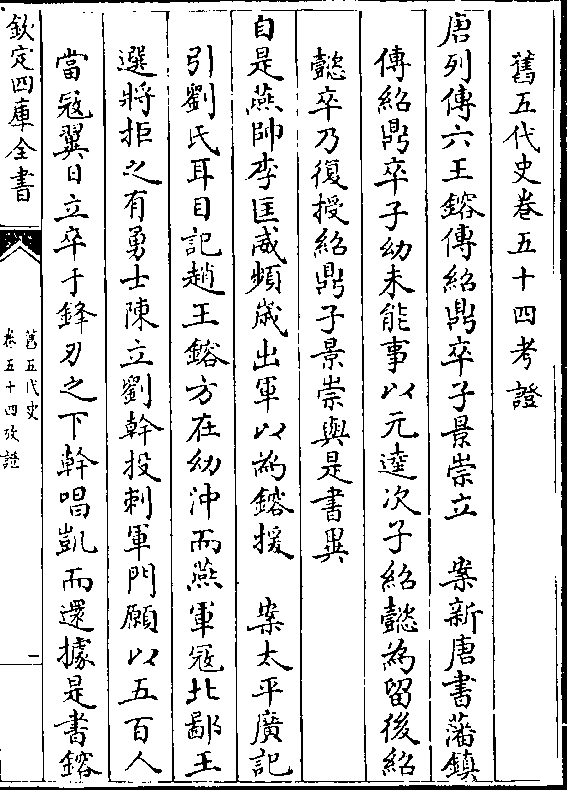 舊五代史卷五十四考證
唐列傳六王鎔傳紹鼎卒子景崇立　案新唐書藩鎮
傳紹鼎卒子幼未能事以元逵次子紹懿為留後紹
懿卒乃復授紹鼎子景崇與是書異
自是燕帥李匡威頻歲出軍以為鎔援　案太平廣記
引劉氏耳目記趙王鎔方在幼沖而燕軍寇北鄙王
選將拒之有勇士陳立劉幹投刺軍門願以五百人
當寇翼日立卒于鋒刃之下幹唱凱而還據是書鎔
欽定四庫全書
舊五代史
卷五十四攷證
一